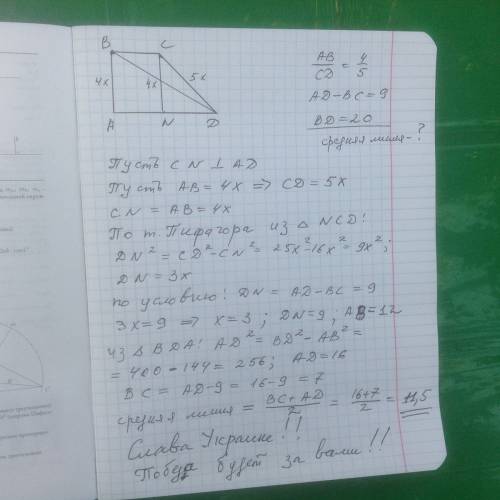 B C
4x 4x 5x
A N D
AB/CD = 4/5
AD-BC = 9
BD = 20
средняя линия - ?
Пусть CN ⊥ AD
Пусть AB = 4x => CD = 5x
CN = AB = 4x
По т. Пифагора из △ NCD:
DN² = CD² - CN² = 25x² - 16x² = 9x²;
DN = 3x
по условию: DN = AD - BC = 9
3x = 9 => x = 3; DN = 9; AB = 12
из △ BDA: AD² = BD² - AB² =
= 400 - 144 = 256; AD = 16
BC = AD - 9 = 16 - 9 = 7
средняя линия = (BC + AD)/2 = (16+7)/2 = 11,5
Слава Украине!!
Победа будет за вами!!